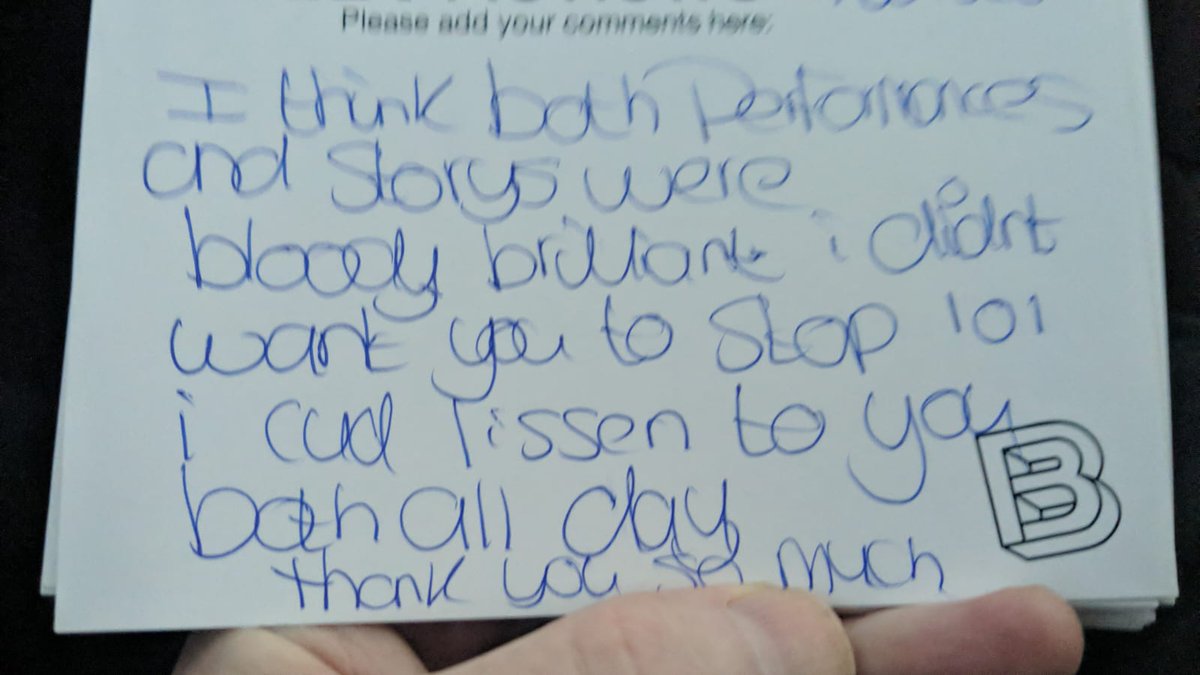 Please add your comments here:
I think both Performances
and storys were
bloody brilliant i didnt
want you to stop lol
i cud lissen to you
both all day
thank you so much
B